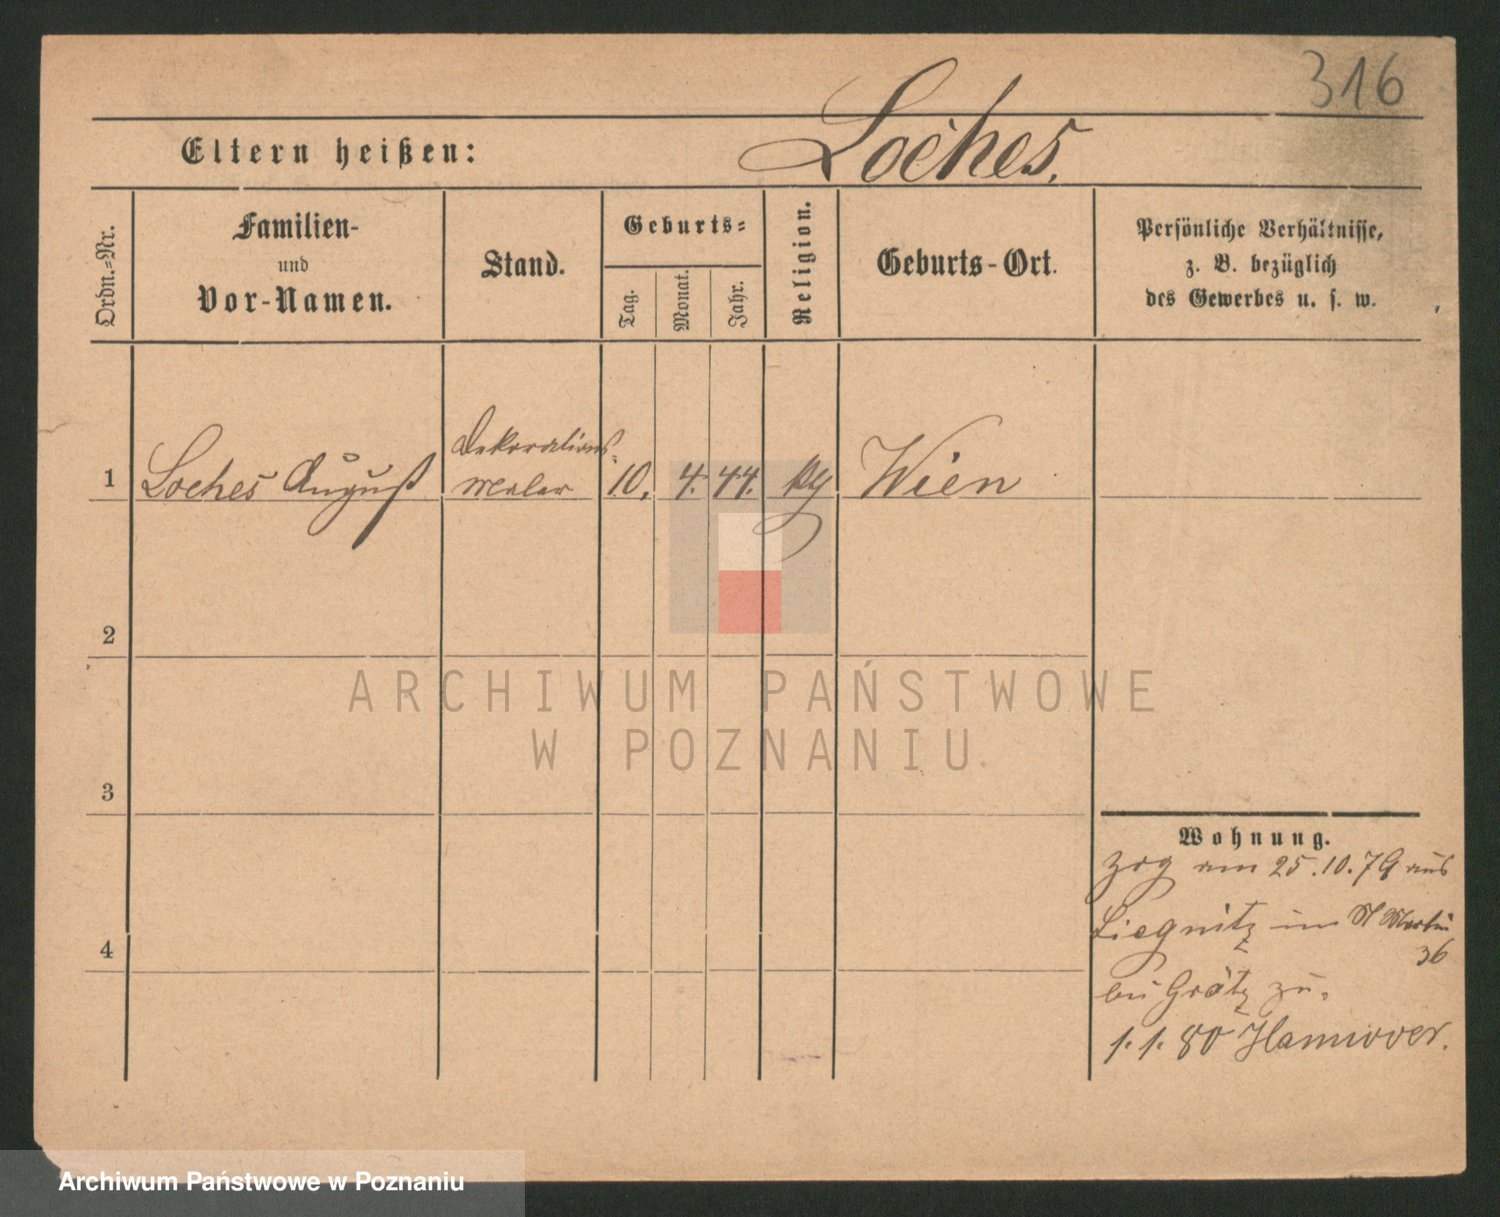 316
Eltern heißen: Loches.
Ordn.=Nr.
Familien-
und
Vor-Namen.
Stand.
Geburts=
Tag.
Monat.
Jahr.
Religion.
Geburts-Ort.
Persönliche Verhältnisse,
z. B. bezüglich
des Gewerbes u. s. w.
Dekorations-
1 Loches August maler 10. 4. 44. Wien
2
3
4
Wohnung.
zog am 25.10.79 aus
Liegnitz im St Martin
36
bei Grätz zu.
1. 1. 80 Hannover.
ARCHIWUM PAŃSTWOWE
W POZNANIU
Archiwum Państwowe w Poznaniu